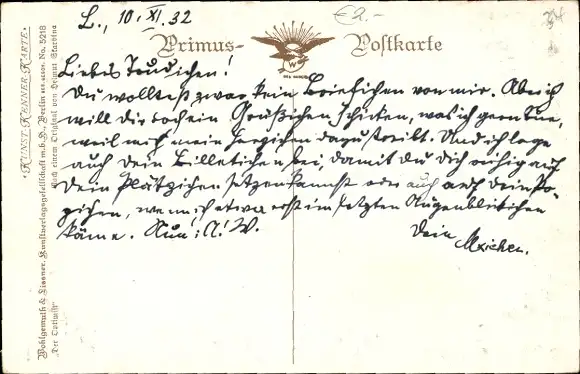 L., 10. XI. 32
€2.-
Primus-Postkarte
W
Liebes Trudichen!
Du wolltest zwar kein Briefchen von mir. Aber ich
will Dir doch ein Grüßchen schicken, was ich gern tue,
weil mich mein Herzchen dazu treibt. Und ich lege
auch Dein Billetchen bei, damit Du Dich ruhig auf
Dein Plätzchen setzen kannst oder auch auf Dein Po-
pochen, wenn ich etwa erst im letzten Augenblickchen
käme. Nun: A! W.
Dein
Maxchen.
"KUNST KENNER-KARTE"
Wohlgemuth & Lissner, Kunstverlagsgesellschaft m.b.H., Berlin No. 5218
Nach einem Original von Helmut Skarbina
"Der Dorfwirt"